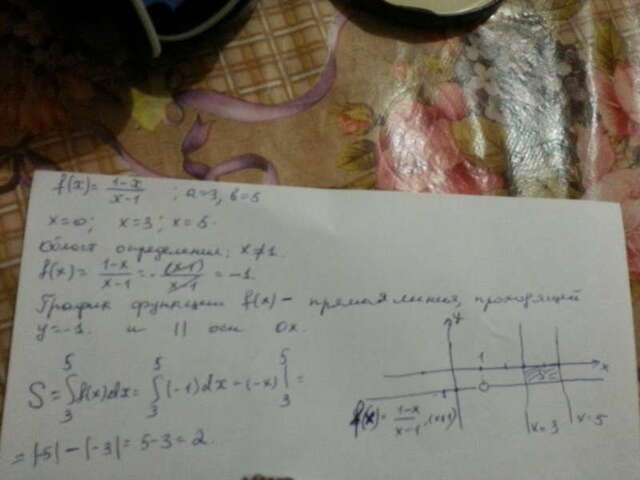 f(x) = \frac{1-x}{x-1} ; a=3, b=5
x=0; x=3; x=5.
Област определения: x≠1.
f(x) = \frac{1-x}{x-1} = -\frac{(x-1)}{x-1} = -1.
График функции f(x) - прямая линия, проходящей
y=-1. и || оси ox.
S = \int_3^5 f(x)dx = \int_3^5 (-1)dx = (-x) |_3^5 =
= |-5| - |-3| = 5-3 = 2.
y
1
x
-1
f(x) = \frac{1-x}{x-1}, (x≠1)
x=3
x=5